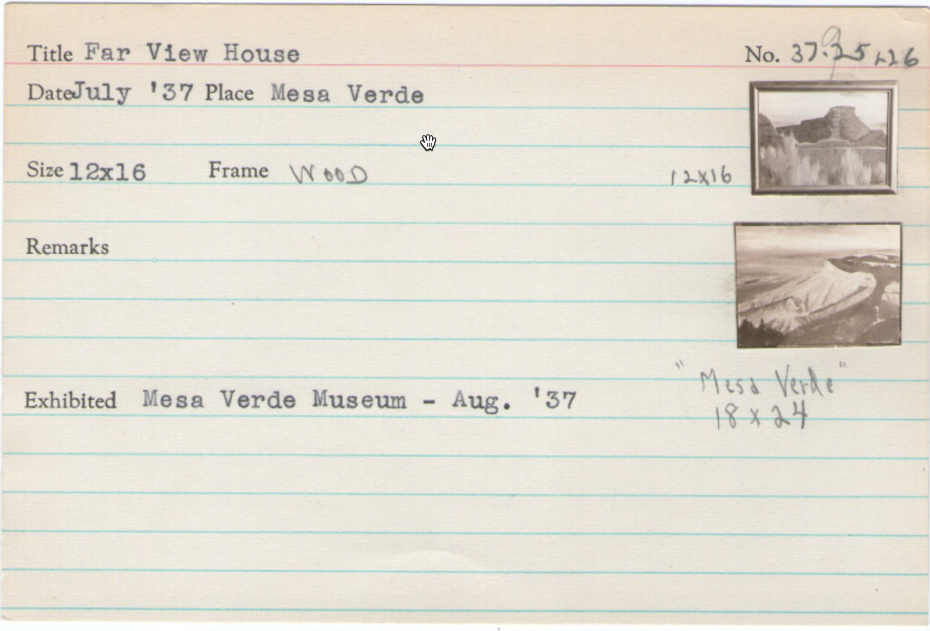 Title Far View House No. 37.25, 26
Date July '37 Place Mesa Verde
Size 12x16 Frame WOOD 12X16
Remarks
"Mesa Verde"
Exhibited Mesa Verde Museum - Aug. '37
18 x 24